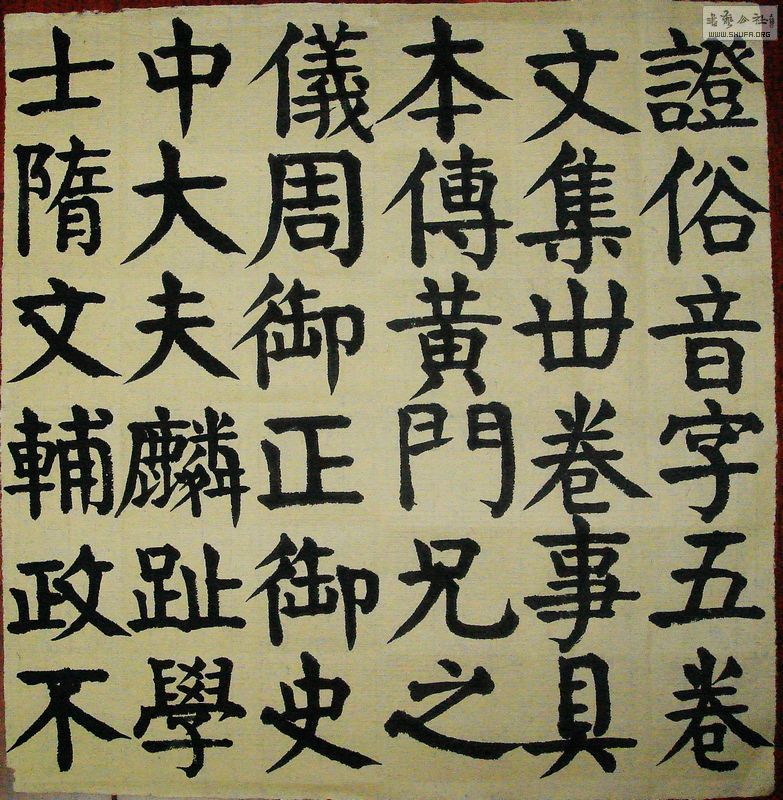 證俗音字五卷
文集丗卷事具
本傳黃門兄之
儀周御正御史
中大夫麟趾學
士隋文輔政不
WWW.SHUFA.ORG